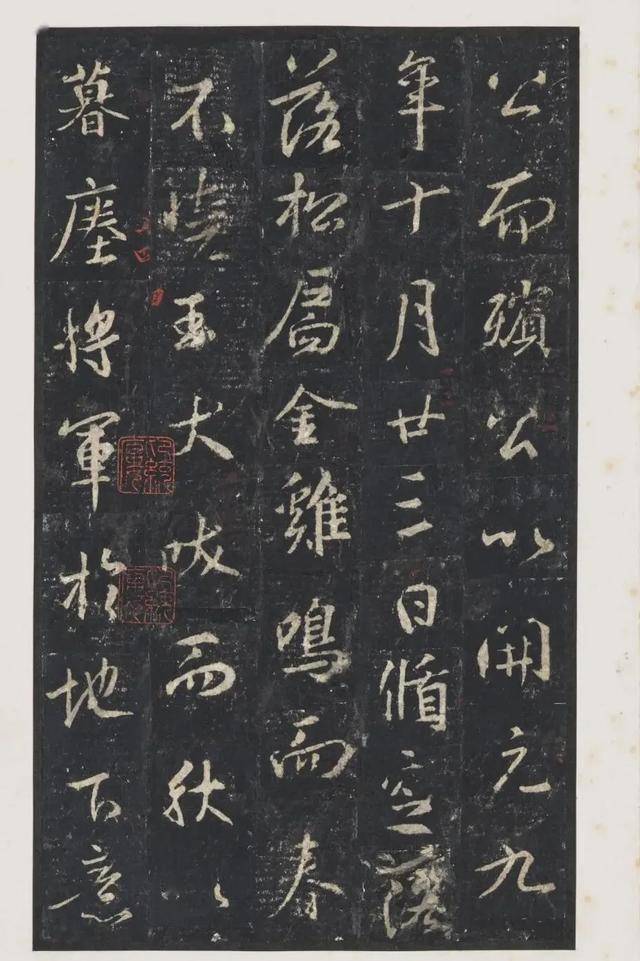 公而殯公以開元九
年十月廿三日循窆
落松扃金雞鳴而春
不曉玉犬吠而秋
暮塵將軍於地下意